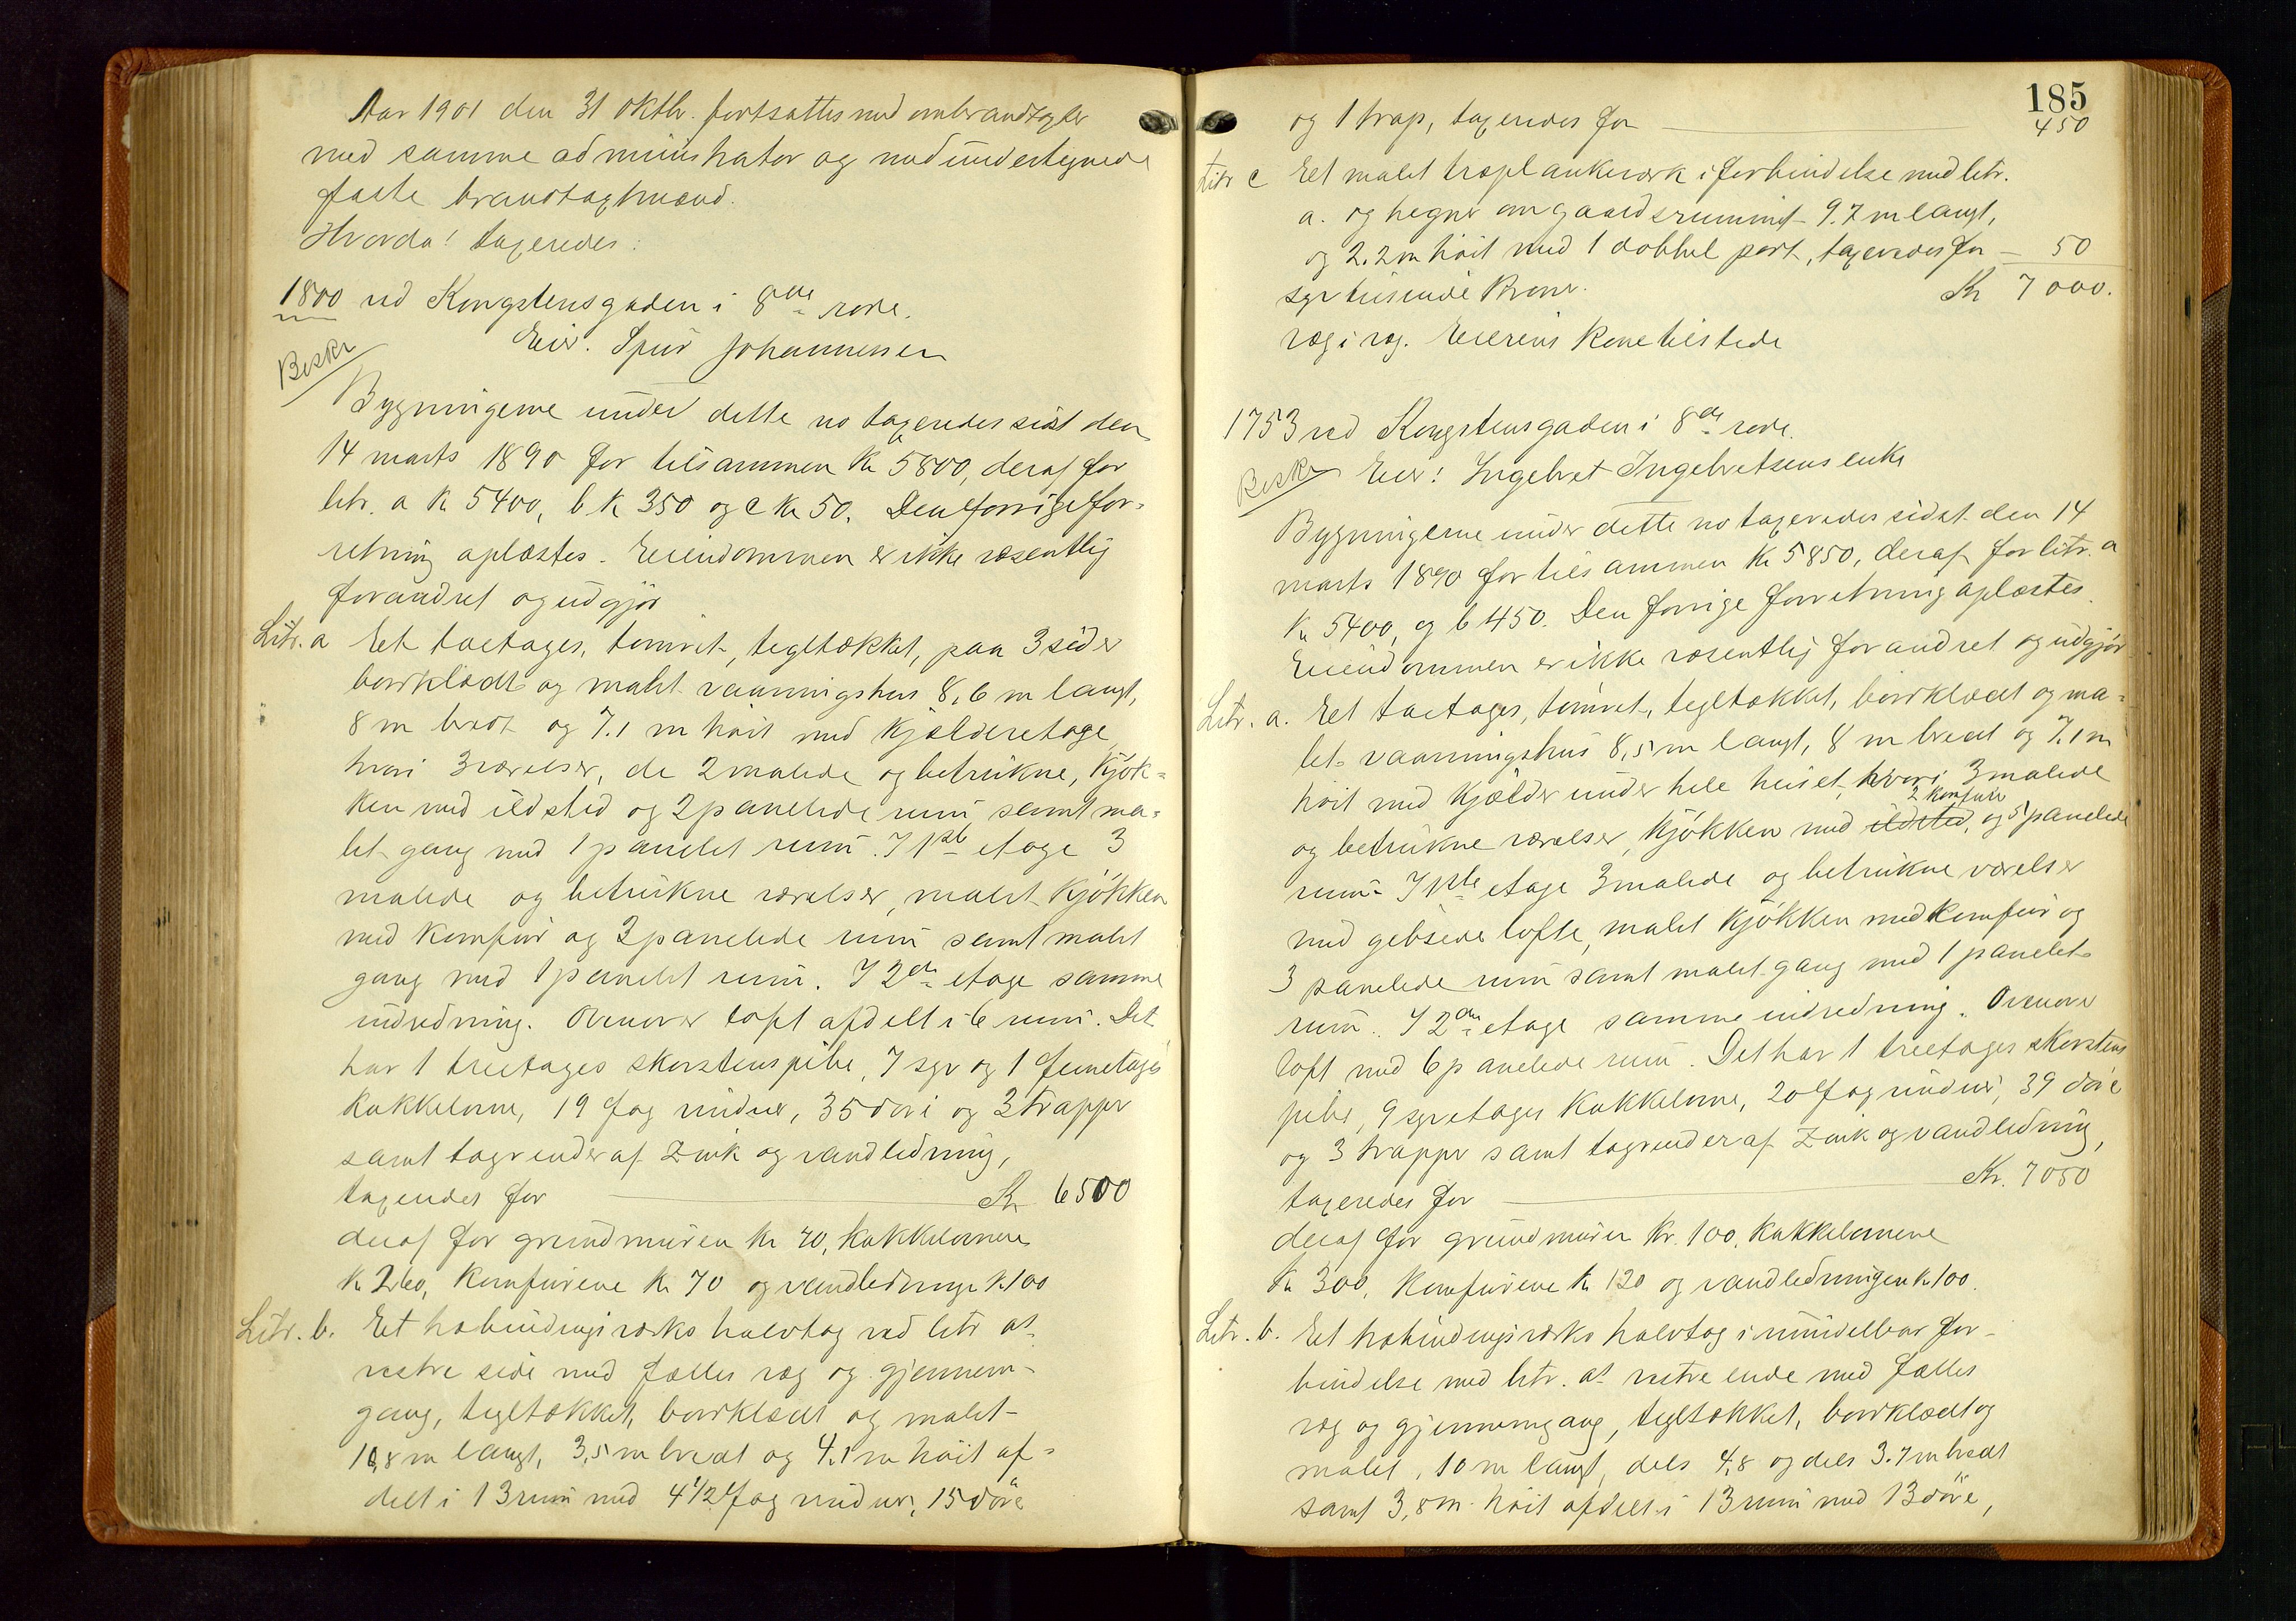 Aar 1901 den 31 oktbr. fortsattes med ombrandtaxter
med samme administrator og med undertegnede
faste brandtaxtmænd.
Hvorda! taxeredes:
1800 ved Kongstensgaden i 8de rode.
Eier. Johannessen
Beskr
Bygningerne under dette no taxeredes sidst den
14 marts 1890 for tilsammen Kr 5800, deraf for
litr. a K 5400, b K 350 og c Kr 50. Den forrige for-
retning oplæstes. Eiendommen er ikke væsentlig
forandret og udgjør
Litr. a Et toetages, tømret, tegltækket, paa 3 sider
bordklædt og malet vaaningshus 8,6 m langt,
8 m bredt og 7.1 m høit med kjælderetage
hvori 3 værelser, de 2 malede og betrukne, kjøk-
ken med ildsted og 2 panelede rum samt ma-
let gang med 1 panelet rum. I 1ste etage 3
malede og betrukne værelser, malet kjøkken
med komfur og 3 panelede rum samt malet
gang med 1 panelet rum. I 2den etage samme
indredning. Ovenover loft afdelt i 6 rum. Det
har 1 treetages skorstenspibe, 7 syv og 1 femetages
kakkelovne, 19 fag vinduer, 35 døre og 3 trapper
samt tagrender af zink og vandledning,
taxeredes for Kr 6500
deraf for grundmuren Kr 70, kakkelovnene
K 260, komfurene Kr 70 og vandledningen K 100
Litr. b. Et halvtag ved litr a's
vestre side med fælles væg og gjennem-
gang, tegltækket, bordklædt og malet
10,8 m langt, 3,5 m bredt og 4.1 m høit af-
delt i 13 rum med 4 1/2 fag vinduer, 15 døre
185
og 1 trap, taxeredes for 450
Litr c Et malet træplankeværk i forbindelse med litr.
a. og hegner om gaardsrummet 9.7 m langt,
og 2.2 m høit med 1 dobbel port, taxeredes for - 50
syv tusende Kroner. Kr 7000.
væg i væg. Eierens kone tilstede
1753 ved Kongstensgaden i 8de rode.
Beskr Eier: Ingebret Ingebretsens enke
Bygningerne under dette no taxeredes sidst den 14
marts 1890 for tilsammen Kr 5850, deraf for litr. a
Kr 5400, og b 450. Den forrige forretning oplæstes.
Eiendommen er ikke væsentlig forandret og udgjør
Litr. a. Et toetages, tømret, tegltækket, bordklædt og ma-
let vaaningshus 8,5 m langt, 8 m bredt og 7.1 m
høit med kjælder under hele huset, hvori 3 malede
2 komfur
og betrukne værelser, kjøkken med ildsted, og 5 panelede
rum. I 1ste etage 3 malede og betrukne værelser
med gibsede lofte, malet kjøkken med komfur og
3 panelede rum samt malet gang med 1 panelet
rum. I 2den etage samme indredning. Ovenover
loft med 6 panelede rum. Det har 1 treetages skorstens
pibe, 9 syvetages kakkelovne, 20 fag vinduer, 39 døre
og 3 trapper samt tagrender af zink og vandledning,
taxeredes for Kr. 7050
deraf for grundmuren Kr. 100. kakkelovnene
Kr 300, komfurene Kr 120 og vandledningen K 100.
Litr. b. Et halvtag i umidelbar for-
bindelse med litr. a's vestre ende med fælles
væg og gjennemgang, tegltækket, bordklædt og
malet, 10 m langt, dels 4,8 og dels 3.7 m bredt
samt 3,8 m høit afdelt i 13 rum med 13 døre,